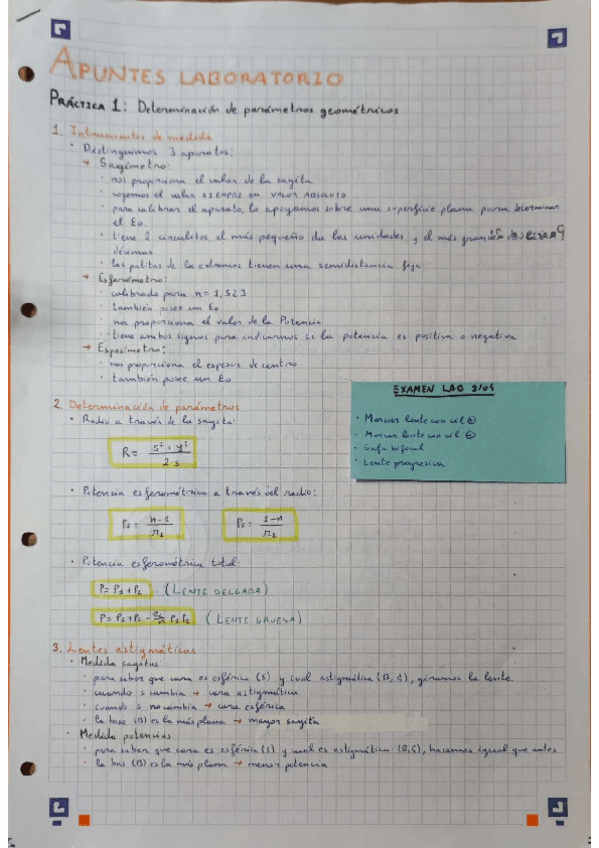 APUNTES LABORATORIO
PRÁCTICA 1: Determinación de parámetros geométricos
1. Intrumentos de medida
• Distinguimos 3 aparatos:
→ Sagímetro:
· nos proporciona el valor de la sagita
· cogemos el valor SIEMPRE EN VALOR ABSOLUTO
· para calibrar el aparato, lo apoyamos sobre una superficie plana para determinar
el Eo.
· tiene 2 circulitos, el más pequeño da las unidades, y el más grande
décimas
· las patitas de los extremos tienen una semidistancia fija
→ Esferómetro:
· calibrado para n = 1,523
· también posee un Eo
· nos proporciona el valor de la Potencia
· tiene ambos signos para indicarnos si la potencia es positiva o negativa
→ Espesímetro:
· nos proporciona el espesor de centro
· también posee un Eo
EXAMEN LAB
· Marcar lente con cil ⊕
· Marcar lente con cil ⊖
· Gafa bifocal
· Lente progresiva
2. Determinación de parámetros
• Radio a través de la sagita:
R = s² + y² / 2·s
• Potencia esferométrica a través del radio:
P₁ = n-1 / r₂ P₂ = 1-n / r₂
• Potencia esferométrica total:
P = P₁ + P₂ (LENTE DELGADA)
P = P₁ + P₂ - P₁ P₂ (LENTE GRUESA)
3. Lentes astigmáticas
• Medida sagitas:
· para saber que cara es esférica (S) y cual astigmática (B, C), giramos la lente.
· cuando s cambia → cara astigmática
· cuando s no cambia → cara esférica
· la base (B) es la más plana → mayor sagita
• Medida potencias
· para saber que cara es esférica (S) y cual es astigmática (B,C), hacemos igual que antes
· la bas (B) es la más plana → menor potencia